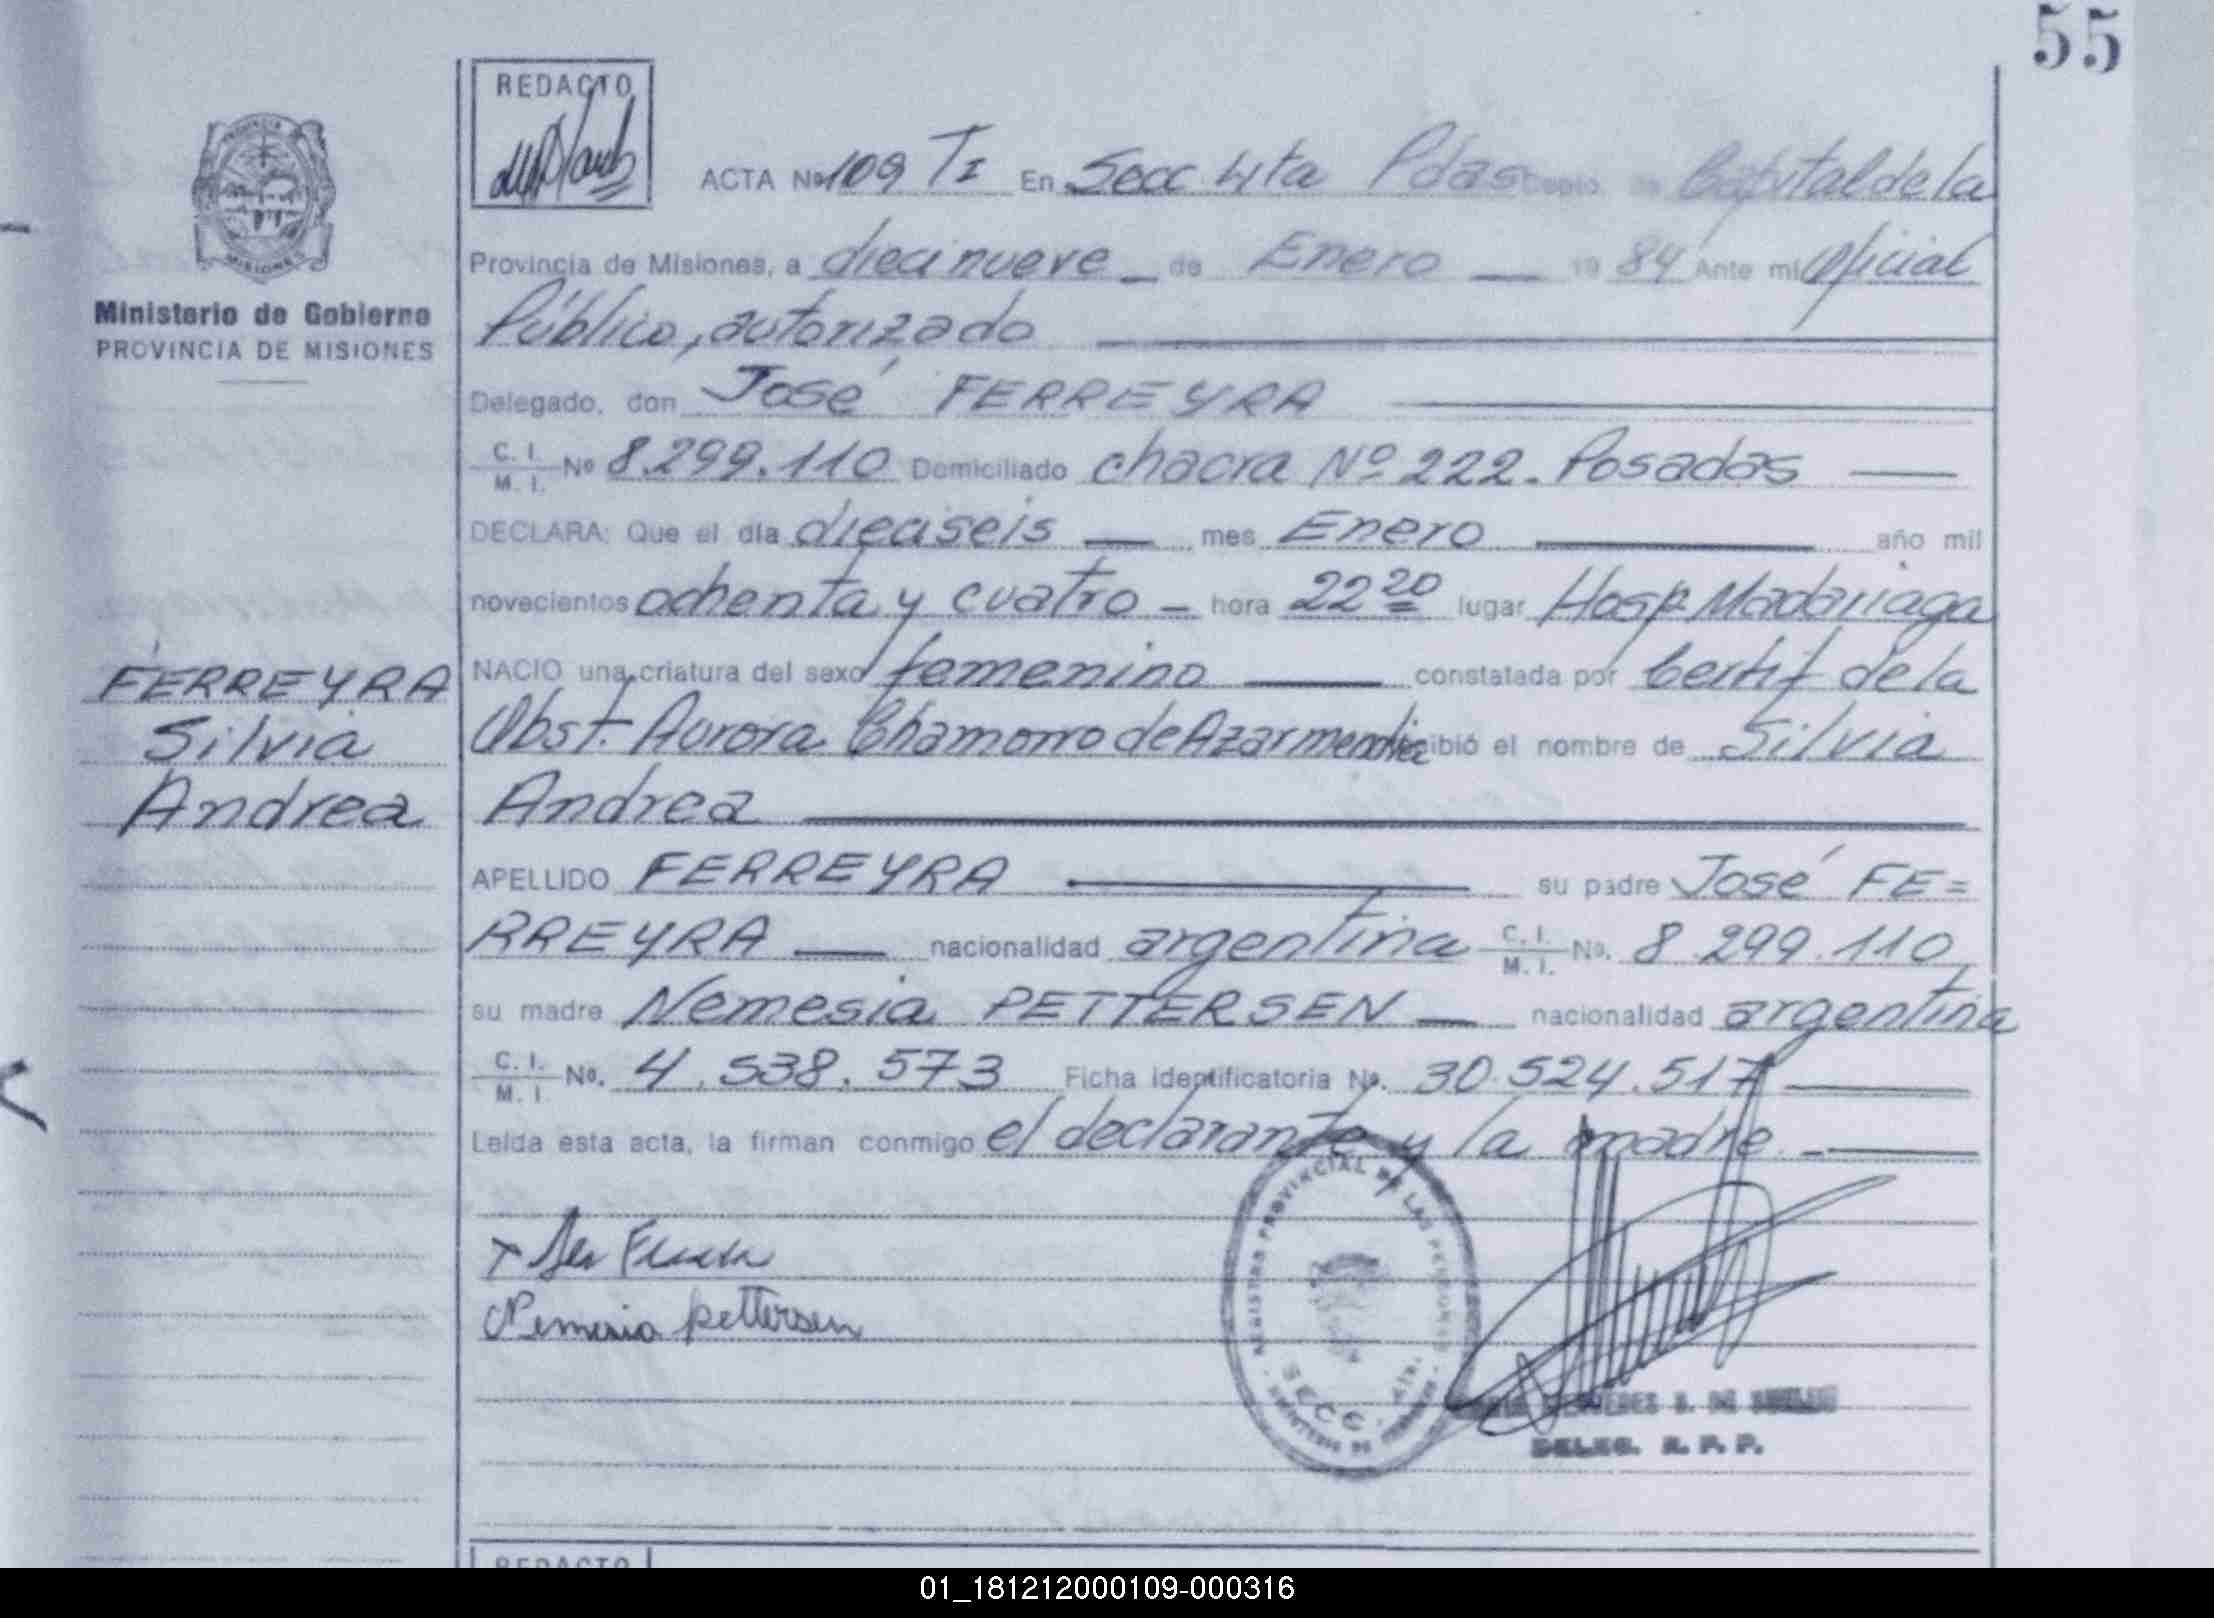 55
REDACTO
ACTA Nº 109 TI En Secc 4ta Pdas Depto. de Capital de la
Provincia de Misiones, a diecinueve de Enero 19 84 Ante mi Oficial
Público, autorizado
Delegado, don José FERREYRA
C. I. M. I. Nº 8.299.110 Domiciliado chacra Nº 222. Posadas
DECLARA: Que el día dieciseis mes Enero año mil
novecientos ochenta y cuatro hora 22 20 lugar Hosp. Madariaga
NACIO una criatura del sexo femenino constatada por Certif de la
Obst. Aurora Chamorro de Azarmendia recibió el nombre de Silvia
Andrea
APELLIDO FERREYRA su padre José FE=
RREYRA nacionalidad argentina C. I. M. I. No. 8.299.110
su madre Nemesia PETTERSEN nacionalidad argentina
C. I. M. I. No. 4.538.573 Ficha identificatoria No. 30.524.517
Leída esta acta, la firman conmigo el declarante y la madre.
Nemesia pettersen
REGISTRO PROVINCIAL DE LAS PERSONAS
SECC. 4ta.
DELEG. R. P. P.
PROVINCIA DE
MISIONES
Ministerio de Gobierno
PROVINCIA DE MISIONES
FERREYRA
Silvia
Andrea
REDACTO
01_181212000109-000316